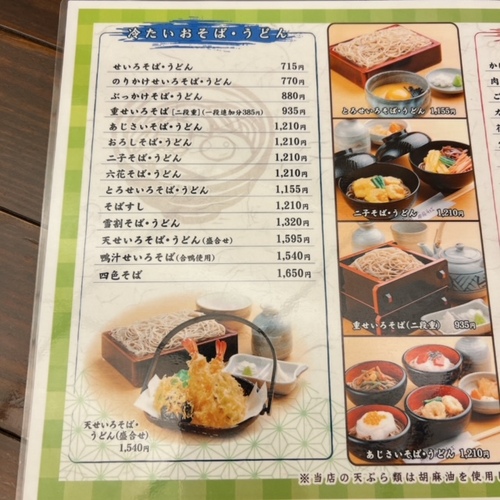 冷たいおそば・うどん
せいろそば・うどん 715円
のりかけせいろそば・うどん 770円
ぶっかけそば・うどん 880円
重せいろそば[二段重](一段追加分385円) 935円
あじさいそば・うどん 1,210円
おろしそば・うどん 1,210円
二子そば・うどん 1,210円
六花そば・うどん 1,210円
とろせいろそば・うどん 1,155円
そばすし 1,210円
雪割そば・うどん 1,320円
天せいろそば・うどん(盛合せ) 1,595円
鴨汁せいろそば(合鴨使用) 1,540円
四色そば 1,650円
天せいろそば・
うどん(盛合せ)
1,540円
とろせいろそば・うどん 1,155円
二子そば・うどん 1,210円
重せいろそば(二段重) 935円
あじさいそば・うどん 1,210円
※当店の天ぷら類は胡麻油を使用